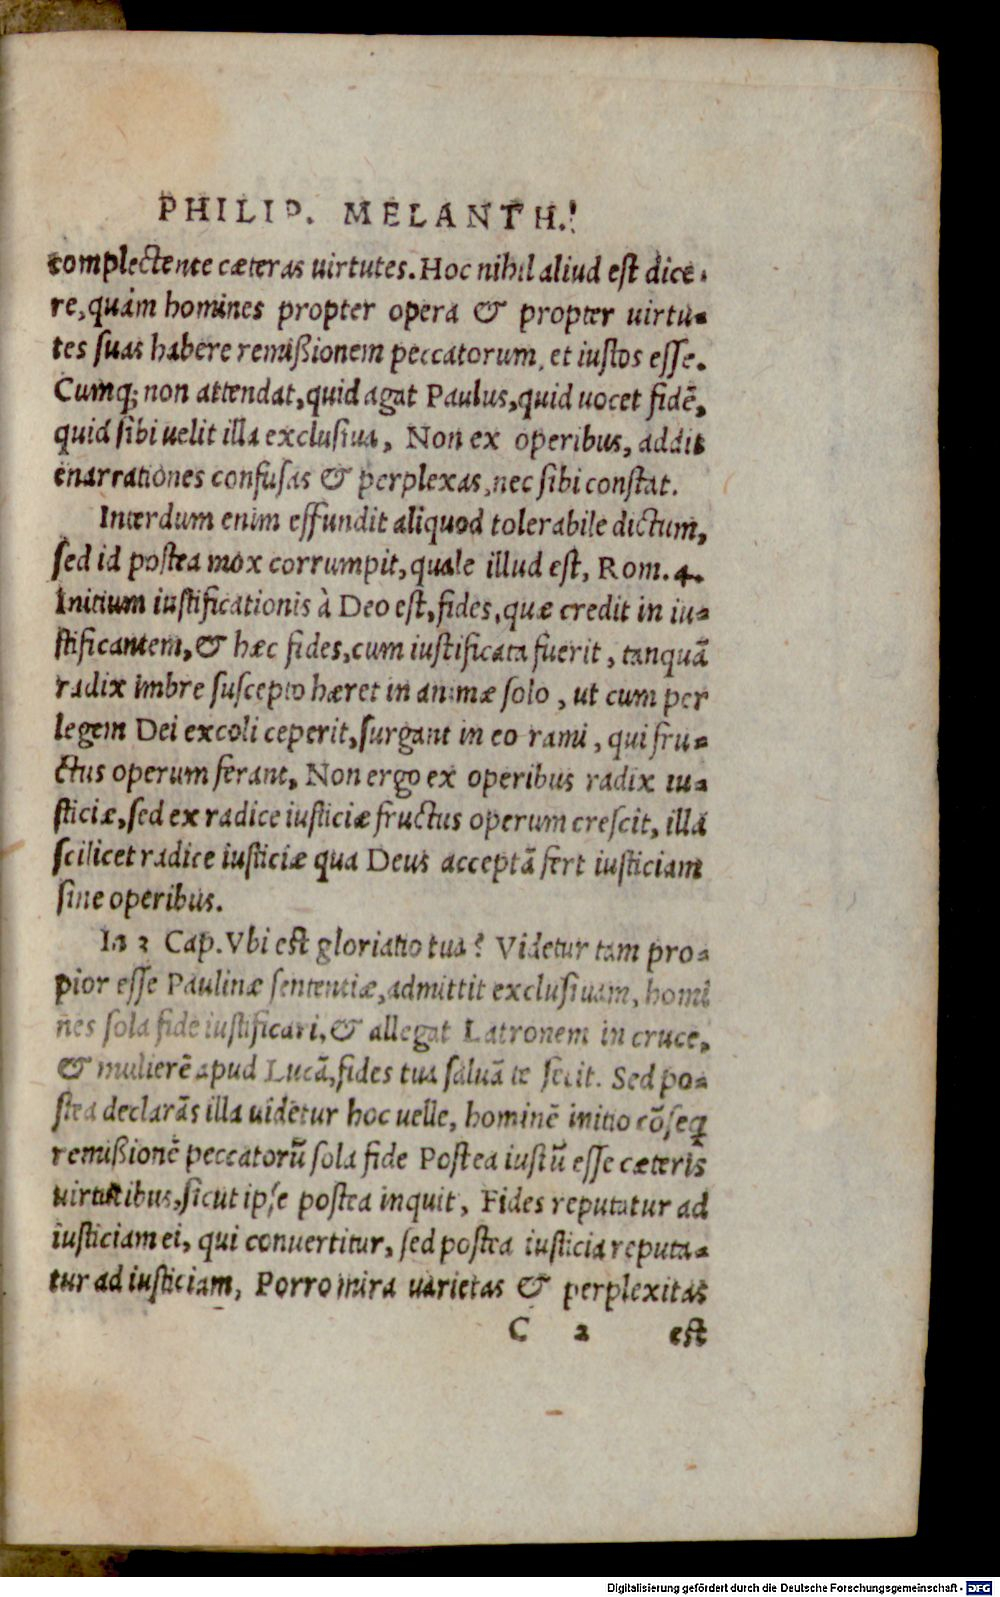 PHILIP. MELANTH.
complectente cæteras uirtutes. Hoc nihil aliud est dice-
re, quàm homines propter opera & propter uirtu-
tes suas habere remißionem peccatorum, et iustos esse.
Cumq; non attendat, quid agat Paulus, quid uocet fidē,
quid sibi uelit illa exclusiua, Non ex operibus, addit
enarrationes confusas & perplexas, nec sibi constat.
Interdum enim effundit aliquod tolerabile dictum,
sed id postea mox corrumpit, quale illud est, Rom. 4.
Initium iustificationis à Deo est, fides, quæ credit in iu-
stificantem, & hæc fides, cum iustificata fuerit, tanquā
radix imbre suscepto hæret in animæ solo, ut cum per
legem Dei excoli ceperit, surgant in eo rami, qui fru-
ctus operum ferant, Non ergo ex operibus radix iu-
sticiæ, sed ex radice iusticiæ fructus operum crescit, illa
scilicet radice iusticiæ qua Deus acceptā fert iusticiam
sine operibus.
In 3 Cap. Vbi est gloriatio tua? Videtur tam pro-
pior esse Paulinæ sententiæ, admittit exclusiuam, homi
nes sola fide iustificari, & allegat Latronem in cruce,
& mulierē apud Lucā, fides tua saluā te fecit. Sed po-
stea declarās illa uidetur hoc uelle, hominē initio cōseq
remißionē peccatorū sola fide Postea iustū esse cæteris
uirtutibus, sicut ipse postea inquit, Fides reputatur ad
iusticiam ei, qui conuertitur, sed postea iusticia reputa-
tur ad iusticiam, Porro mira uarietas & perplexitas
C 2 est
Digitalisierung gefördert durch die Deutsche Forschungsgemeinschaft - DFG